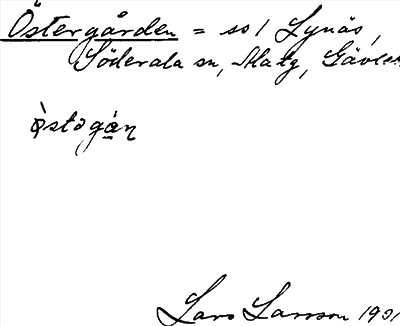 Östergården = so / Lynäs,
Söderala sn, Ala tg, Gävleb
òstəgá̱n
Lars Larsson 1931